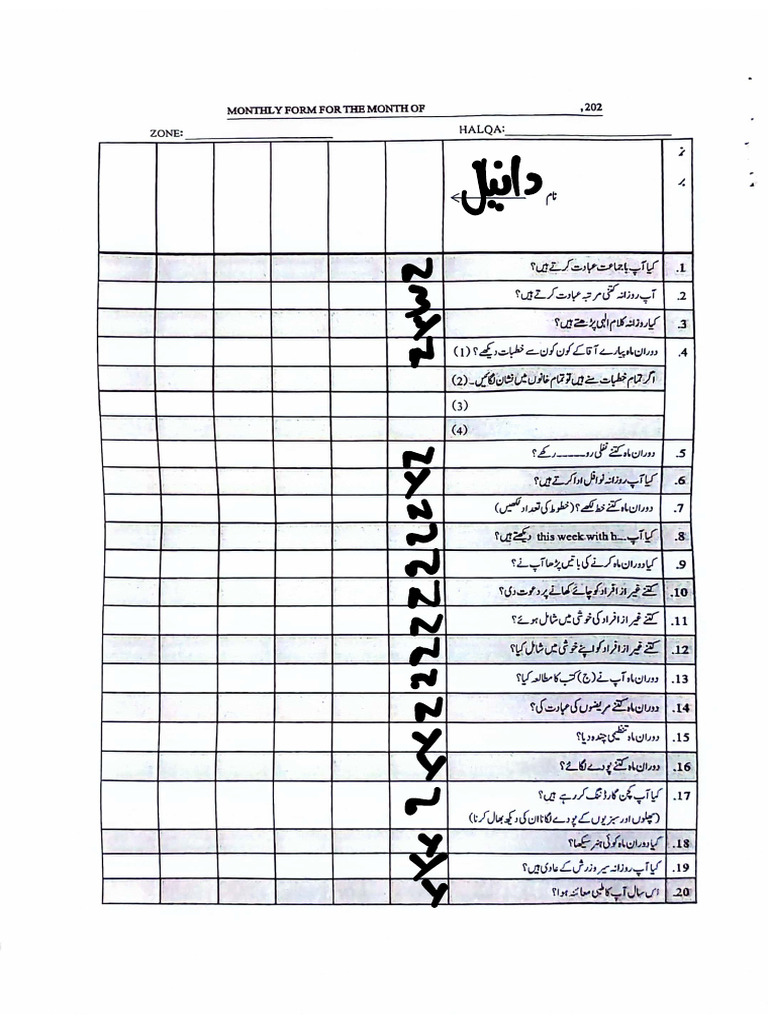 MONTHLY FORM FOR THE MONTH OF ,202
ZONE: HALQA:
نمبر
نام دانیال
1. کیا آپ باجماعت عبادت کرتے ہیں؟
2. آپ روزانہ کتنی مرتبہ عبادت کرتے ہیں؟
3. کیا روزانہ کلام الٰہی پڑھتے ہیں؟
4. دوران ماہ پیارے آقا کے کون کون سے خطبات دیکھے؟ (1)
اگر تمام خطبات سنے ہیں تو تمام خانوں میں نشان لگائیں۔ (2)
(3)
(4)
5. دوران ماہ کتنے نفلی رو۔۔۔۔۔ رکھے؟
6. کیا آپ روزانہ نوافل ادا کرتے ہیں؟
7. دوران ماہ کتنے خط لکھے؟ (خطوط کی تعداد لکھیں)
8. کیا آپ this week with h.... دیکھتے ہیں؟
9. کیا دوران ماہ کرنے کی باتیں پڑھا آپ نے؟
10. کتنے غیر از افراد کو چائے کھانے پر دعوت دی؟
11. کتنے غیر از افراد کی خوشی میں شامل ہوئے؟
12. کتنے غیر از افراد کو اپنے خوشی میں شامل کیا؟
13. دوران ماہ آپ نے (ج) کتب کا مطالعہ کیا؟
14. دوران ماہ کتنے مریضوں کی عیادت کی؟
15. دوران ماہ تنظیمی چندہ دیا؟
16. دوران ماہ کتنے پودے لگائے؟
17. کیا آپ کچن گارڈننگ کر رہے ہیں؟
(پھلوں اور سبزیوں کے پودے لگانا ان کی دیکھ بھال کرنا)
18. کیا دوران ماہ کوئی ہنر سیکھا؟
19. کیا آپ روزانہ سیر و ورزش کے عادی ہیں؟
20. اس سال آپ کا طبی معائنہ ہوا؟